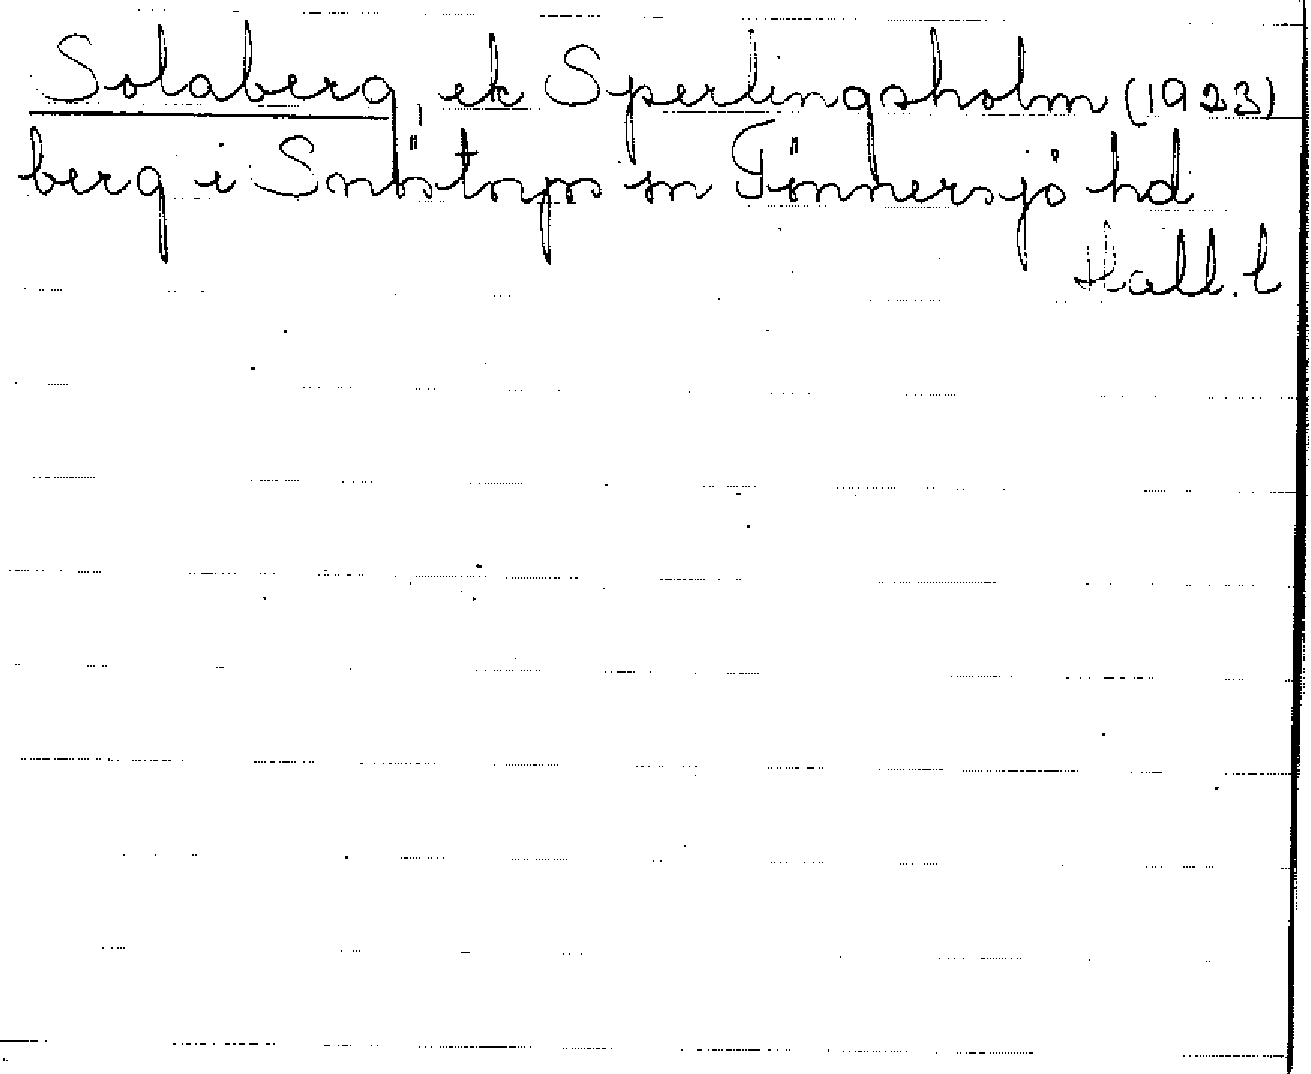 Solaberg, ek Sperlingsholm (1923)
berg i Snöstorps sn Tönnersjö hd
Hall. l